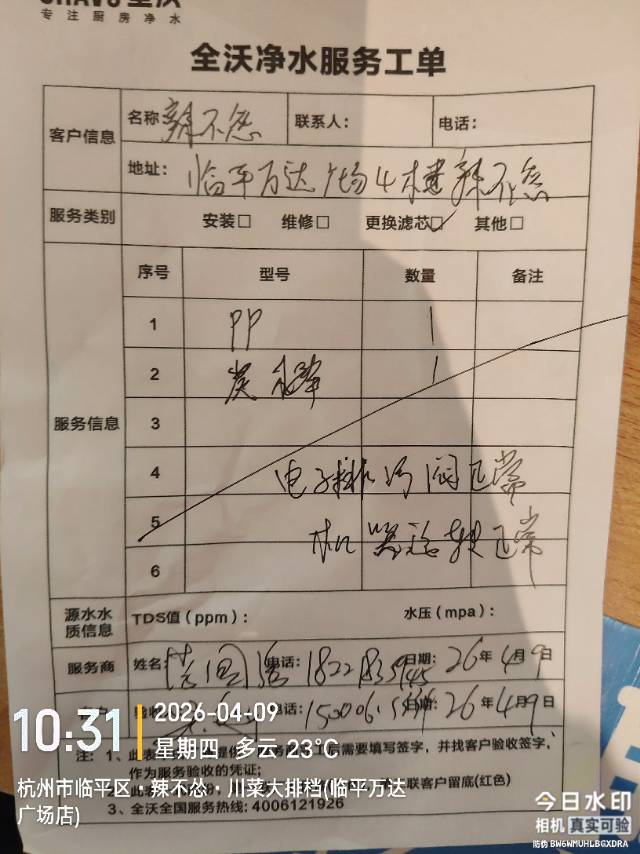 专注厨房净水
全沃净水服务工单
客户信息
名称 辣不怂 联系人： 电话：
地址： 临平万达广场4楼辣不怂
服务类别 安装□ 维修□ 更换滤芯☑ 其他□
服务信息
序号 型号 数量 备注
1 PP 1
2 炭 1
3
4 电子排污阀正常
5 机器运转正常
6
源水水质信息 TDS值（ppm）： 水压（mpa）：
服务商 姓名： 电话： 日期：26年4月9日
验收 电话： 日期：26年4月9日
10:31 2026-04-09
星期四 多云 23℃
杭州市临平区·辣不怂·川菜大排档(临平万达广场店)
注：1、此表 后需要填写签字，并找客户验收签字，
作为服务验收的凭证；
2、此 联客户留底(红色)
3、全沃全国服务热线：4006121926
今日水印
相机 真实可验
防伪 BW6WMUHLBGXDRA